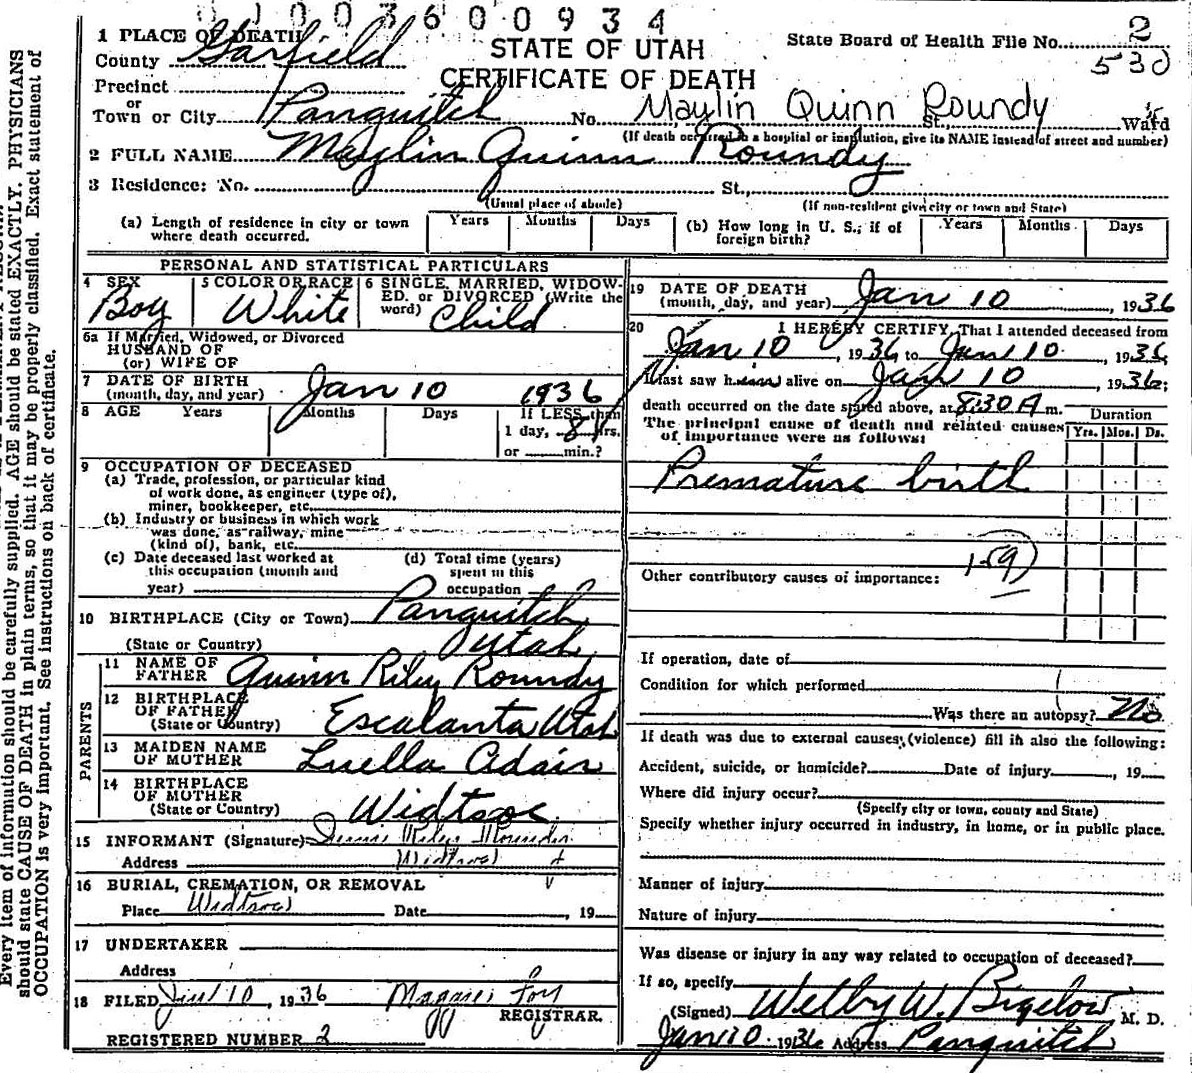 01003600934
1 PLACE OF DEATH
County Garfield
STATE OF UTAH
CERTIFICATE OF DEATH
State Board of Health File No. 2
530
Precinct
or
Town or City Panguitch No. Maylin Quinn Roundy St., Ward
(If death occurred in a hospital or institution, give its NAME instead of street and number)
2 FULL NAME Maylin Quinn Roundy
3 Residence: No. St.,
(Usual place of abode) (If non-resident give city or town and State)
(a) Length of residence in city or town where death occurred. Years Months Days
(b) How long in U. S., if of foreign birth? Years Months Days
PERSONAL AND STATISTICAL PARTICULARS
4 SEX Boy
5 COLOR OR RACE White
6 SINGLE, MARRIED, WIDOWED, or DIVORCED (Write the word) Child
6a If Married, Widowed, or Divorced
HUSBAND OF
(or) WIFE OF
7 DATE OF BIRTH
(month, day, and year) Jan 10 1936
8 AGE Years Months Days If LESS than
1 day, 8 hrs.
or min.?
9 OCCUPATION OF DECEASED
(a) Trade, profession, or particular kind
of work done, as engineer (type of),
miner, bookkeeper, etc.
(b) Industry or business in which work
was done, as railway, mine
(kind of), bank, etc.
(c) Date deceased last worked at
this occupation (month and
year)
(d) Total time (years)
spent in this
occupation
10 BIRTHPLACE (City or Town) Panguitch
(State or Country) Utah
PARENTS
11 NAME OF
FATHER Quinn Riley Roundy
12 BIRTHPLACE
OF FATHER
(State or Country) Escalanta Utah
13 MAIDEN NAME
OF MOTHER Luella Adair
14 BIRTHPLACE
OF MOTHER
(State or Country) Widtsoe
15 INFORMANT (Signature) Riley
Address Widtsoe
16 BURIAL, CREMATION, OR REMOVAL
Place Widtsoe Date , 19
17 UNDERTAKER
Address
18 FILED Jan 10, 1936 Foy
REGISTRAR.
REGISTERED NUMBER 2
19 DATE OF DEATH
(month, day, and year) Jan 10 1936
20 I HEREBY CERTIFY, That I attended deceased from
Jan 10, 1936 to Jan 10, 1936
I last saw him alive on Jan 10, 1936;
death occurred on the date stated above, at 8:30 A m.
The principal cause of death and related causes
of importance were as follows:
Duration
Yrs. Mos. Ds.
Premature birth
159
Other contributory causes of importance:
If operation, date of
Condition for which performed
Was there an autopsy? No
If death was due to external causes, (violence) fill in also the following:
Accident, suicide, or homicide? Date of injury , 19
Where did injury occur?
(Specify city or town, county and State)
Specify whether injury occurred in industry, in home, or in public place.
Manner of injury
Nature of injury
Was disease or injury in any way related to occupation of deceased?
If so, specify
(Signed) Welby W. Bigelow M. D.
Jan 10 1936 Address Panguitch
Every item of information should be carefully supplied. AGE should be stated EXACTLY. PHYSICIANS
should state CAUSE OF DEATH in plain terms, so that it may be properly classified. Exact statement of
OCCUPATION is very important. See instructions on back of certificate.